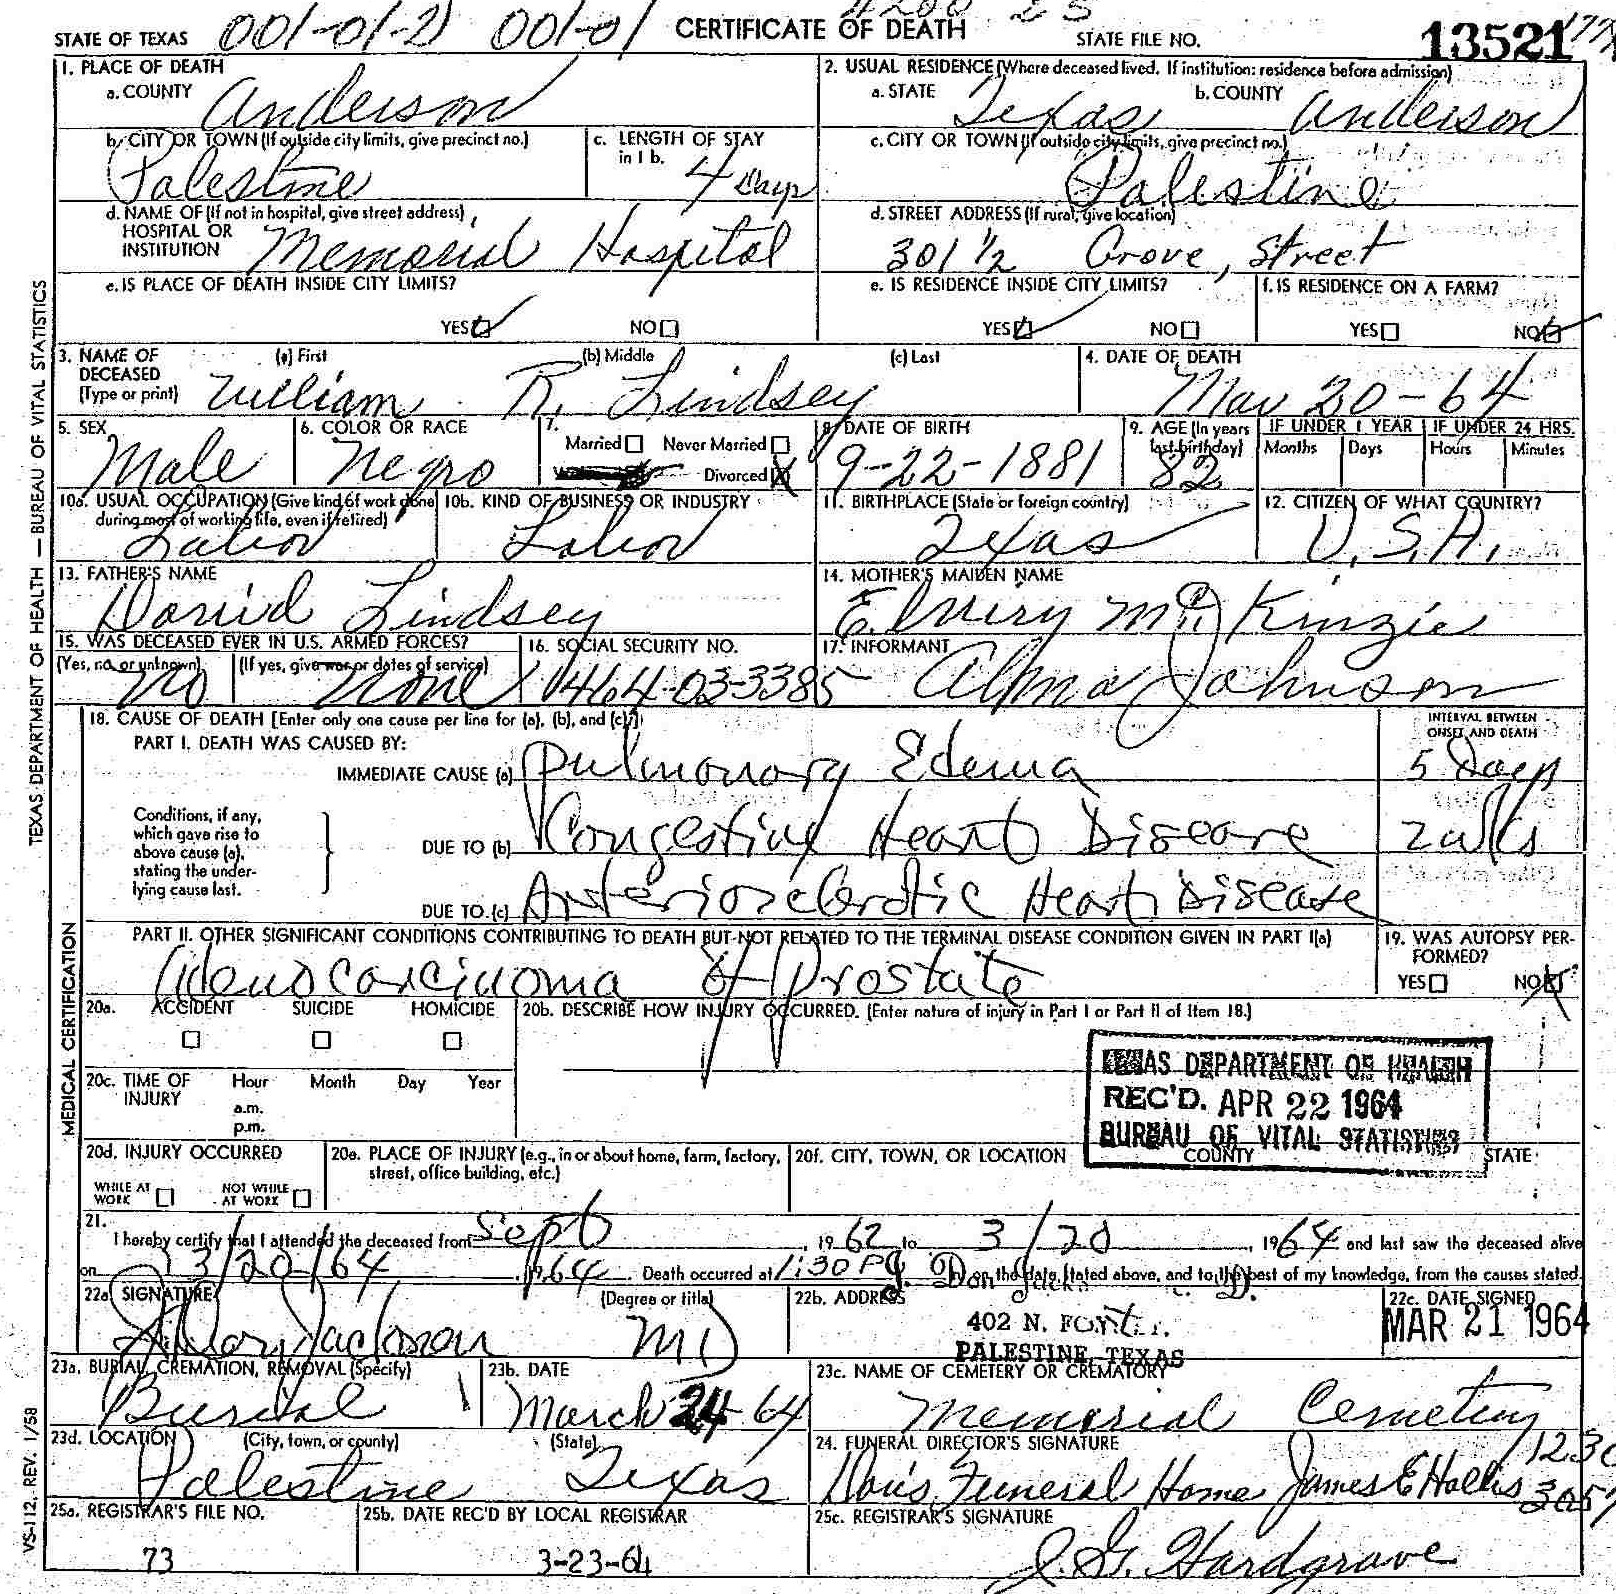 001-01-2 001-01 CERTIFICATE OF DEATH 4200 25
STATE OF TEXAS STATE FILE NO. 13521
1. PLACE OF DEATH
a. COUNTY Anderson
2. USUAL RESIDENCE (Where deceased lived. If institution: residence before admission)
a. STATE Texas b. COUNTY Anderson
b. CITY OR TOWN (If outside city limits, give precinct no.) Palestine
c. LENGTH OF STAY in 1 b. 4 Days
c. CITY OR TOWN (If outside city limits, give precinct no.) Palestine
d. NAME OF (If not in hospital, give street address)
HOSPITAL OR
INSTITUTION Memorial Hospital
d. STREET ADDRESS (If rural, give location)
301 ½ Grove, Street
e. IS PLACE OF DEATH INSIDE CITY LIMITS?
YES NO
e. IS RESIDENCE INSIDE CITY LIMITS?
YES NO
f. IS RESIDENCE ON A FARM?
YES NO
3. NAME OF DECEASED (Type or print)
(a) First (b) Middle (c) Last
William R. Lindsey
4. DATE OF DEATH
Mar 20-64
5. SEX
Male
6. COLOR OR RACE
Negro
7. Married Never Married
Divorced X
8. DATE OF BIRTH
9-22-1881
9. AGE (In years last birthday)
82
IF UNDER 1 YEAR IF UNDER 24 HRS.
Months Days Hours Minutes
10a. USUAL OCCUPATION (Give kind of work done during most of working life, even if retired)
Labor
10b. KIND OF BUSINESS OR INDUSTRY
Labor
11. BIRTHPLACE (State or foreign country)
Texas
12. CITIZEN OF WHAT COUNTRY?
U.S.A.
13. FATHER'S NAME
David Lindsey
14. MOTHER'S MAIDEN NAME
Elviry McKinzie
15. WAS DECEASED EVER IN U.S. ARMED FORCES?
(Yes, no, or unknown) (If yes, give war or dates of service)
No None
16. SOCIAL SECURITY NO.
464-03-3385
17. INFORMANT
Alma Johnson
18. CAUSE OF DEATH [Enter only one cause per line for (a), (b), and (c)]
INTERVAL BETWEEN ONSET AND DEATH
PART I. DEATH WAS CAUSED BY:
IMMEDIATE CAUSE (a) Pulmonary Edema 5 Days
Conditions, if any, which gave rise to above cause (a), stating the underlying cause last.
DUE TO (b) Congestive Heart Disease 2 wks
DUE TO (c) Arteriosclerotic Heart Disease
PART II. OTHER SIGNIFICANT CONDITIONS CONTRIBUTING TO DEATH BUT NOT RELATED TO THE TERMINAL DISEASE CONDITION GIVEN IN PART I(a)
Adenocarcinoma of Prostate
19. WAS AUTOPSY PERFORMED?
YES NO
20a. ACCIDENT SUICIDE HOMICIDE
20b. DESCRIBE HOW INJURY OCCURRED. (Enter nature of injury in Part I or Part II of Item 18.)
20c. TIME OF INJURY Hour Month Day Year
a.m.
p.m.
TEXAS DEPARTMENT OF HEALTH
REC'D. APR 22 1964
BUREAU OF VITAL STATISTICS
20d. INJURY OCCURRED
WHILE AT WORK NOT WHILE AT WORK
20e. PLACE OF INJURY (e.g., in or about home, farm, factory, street, office building, etc.)
20f. CITY, TOWN, OR LOCATION COUNTY STATE
21.
I hereby certify that I attended the deceased from Sept, 1962 to 3/20, 1964 and last saw the deceased alive
on 3/20/64, 1964. Death occurred at 1:30 P on the date stated above, and to the best of my knowledge, from the causes stated.
22a. SIGNATURE (Degree or title)
J. Don Jackson MD
22b. ADDRESS
402 N.
PALESTINE, TEXAS
22c. DATE SIGNED
MAR 21 1964
23a. BURIAL, CREMATION, REMOVAL (Specify)
Burial
23b. DATE
March 24-64
23c. NAME OF CEMETERY OR CREMATORY
Memorial Cemetery
23d. LOCATION (City, town, or county) (State)
Palestine Texas
24. FUNERAL DIRECTOR'S SIGNATURE
Davis Funeral Home James E Hollis
25a. REGISTRAR'S FILE NO.
73
25b. DATE REC'D BY LOCAL REGISTRAR
3-23-64
25c. REGISTRAR'S SIGNATURE
J. G. Hardgrave
TEXAS DEPARTMENT OF HEALTH — BUREAU OF VITAL STATISTICS
MEDICAL CERTIFICATION
VS-112, REV. 1/58